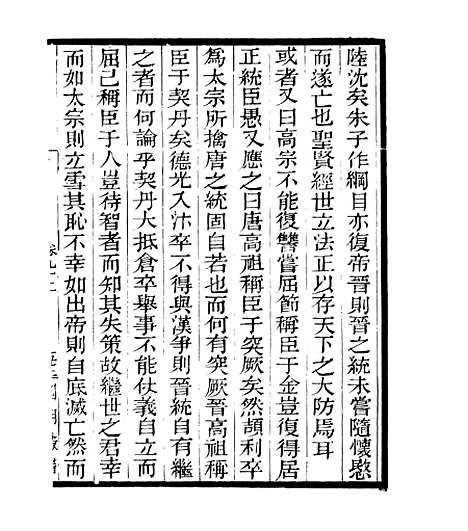 陸沈矣朱子作綱目亦復帝晉則晉之統未嘗隨懷愍
而遂亡也聖賢經世立法正以存天下之大防焉耳
或者又曰高宗不能復讐嘗屈節稱臣于金豈復得居
正統臣愚又應之曰唐高祖稱臣于突厥矣然頡利卒
爲太宗所擒唐之統固自若也而何有突厥晉高祖稱
臣于契丹矣德光入汴卒不得與漢爭則晉統自有繼
之者而何論乎契丹大抵倉卒舉事不能仗義自立而
屈己稱臣于人豈待智者而知其失策故繼世之君幸
而如太宗則立雪其恥不幸如出帝則自底滅亡然而